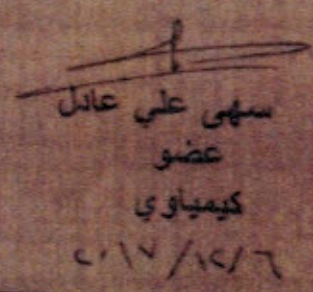 سهى علي عادل
عضو
كيمياوي
٢٠١٧/١٢/٦